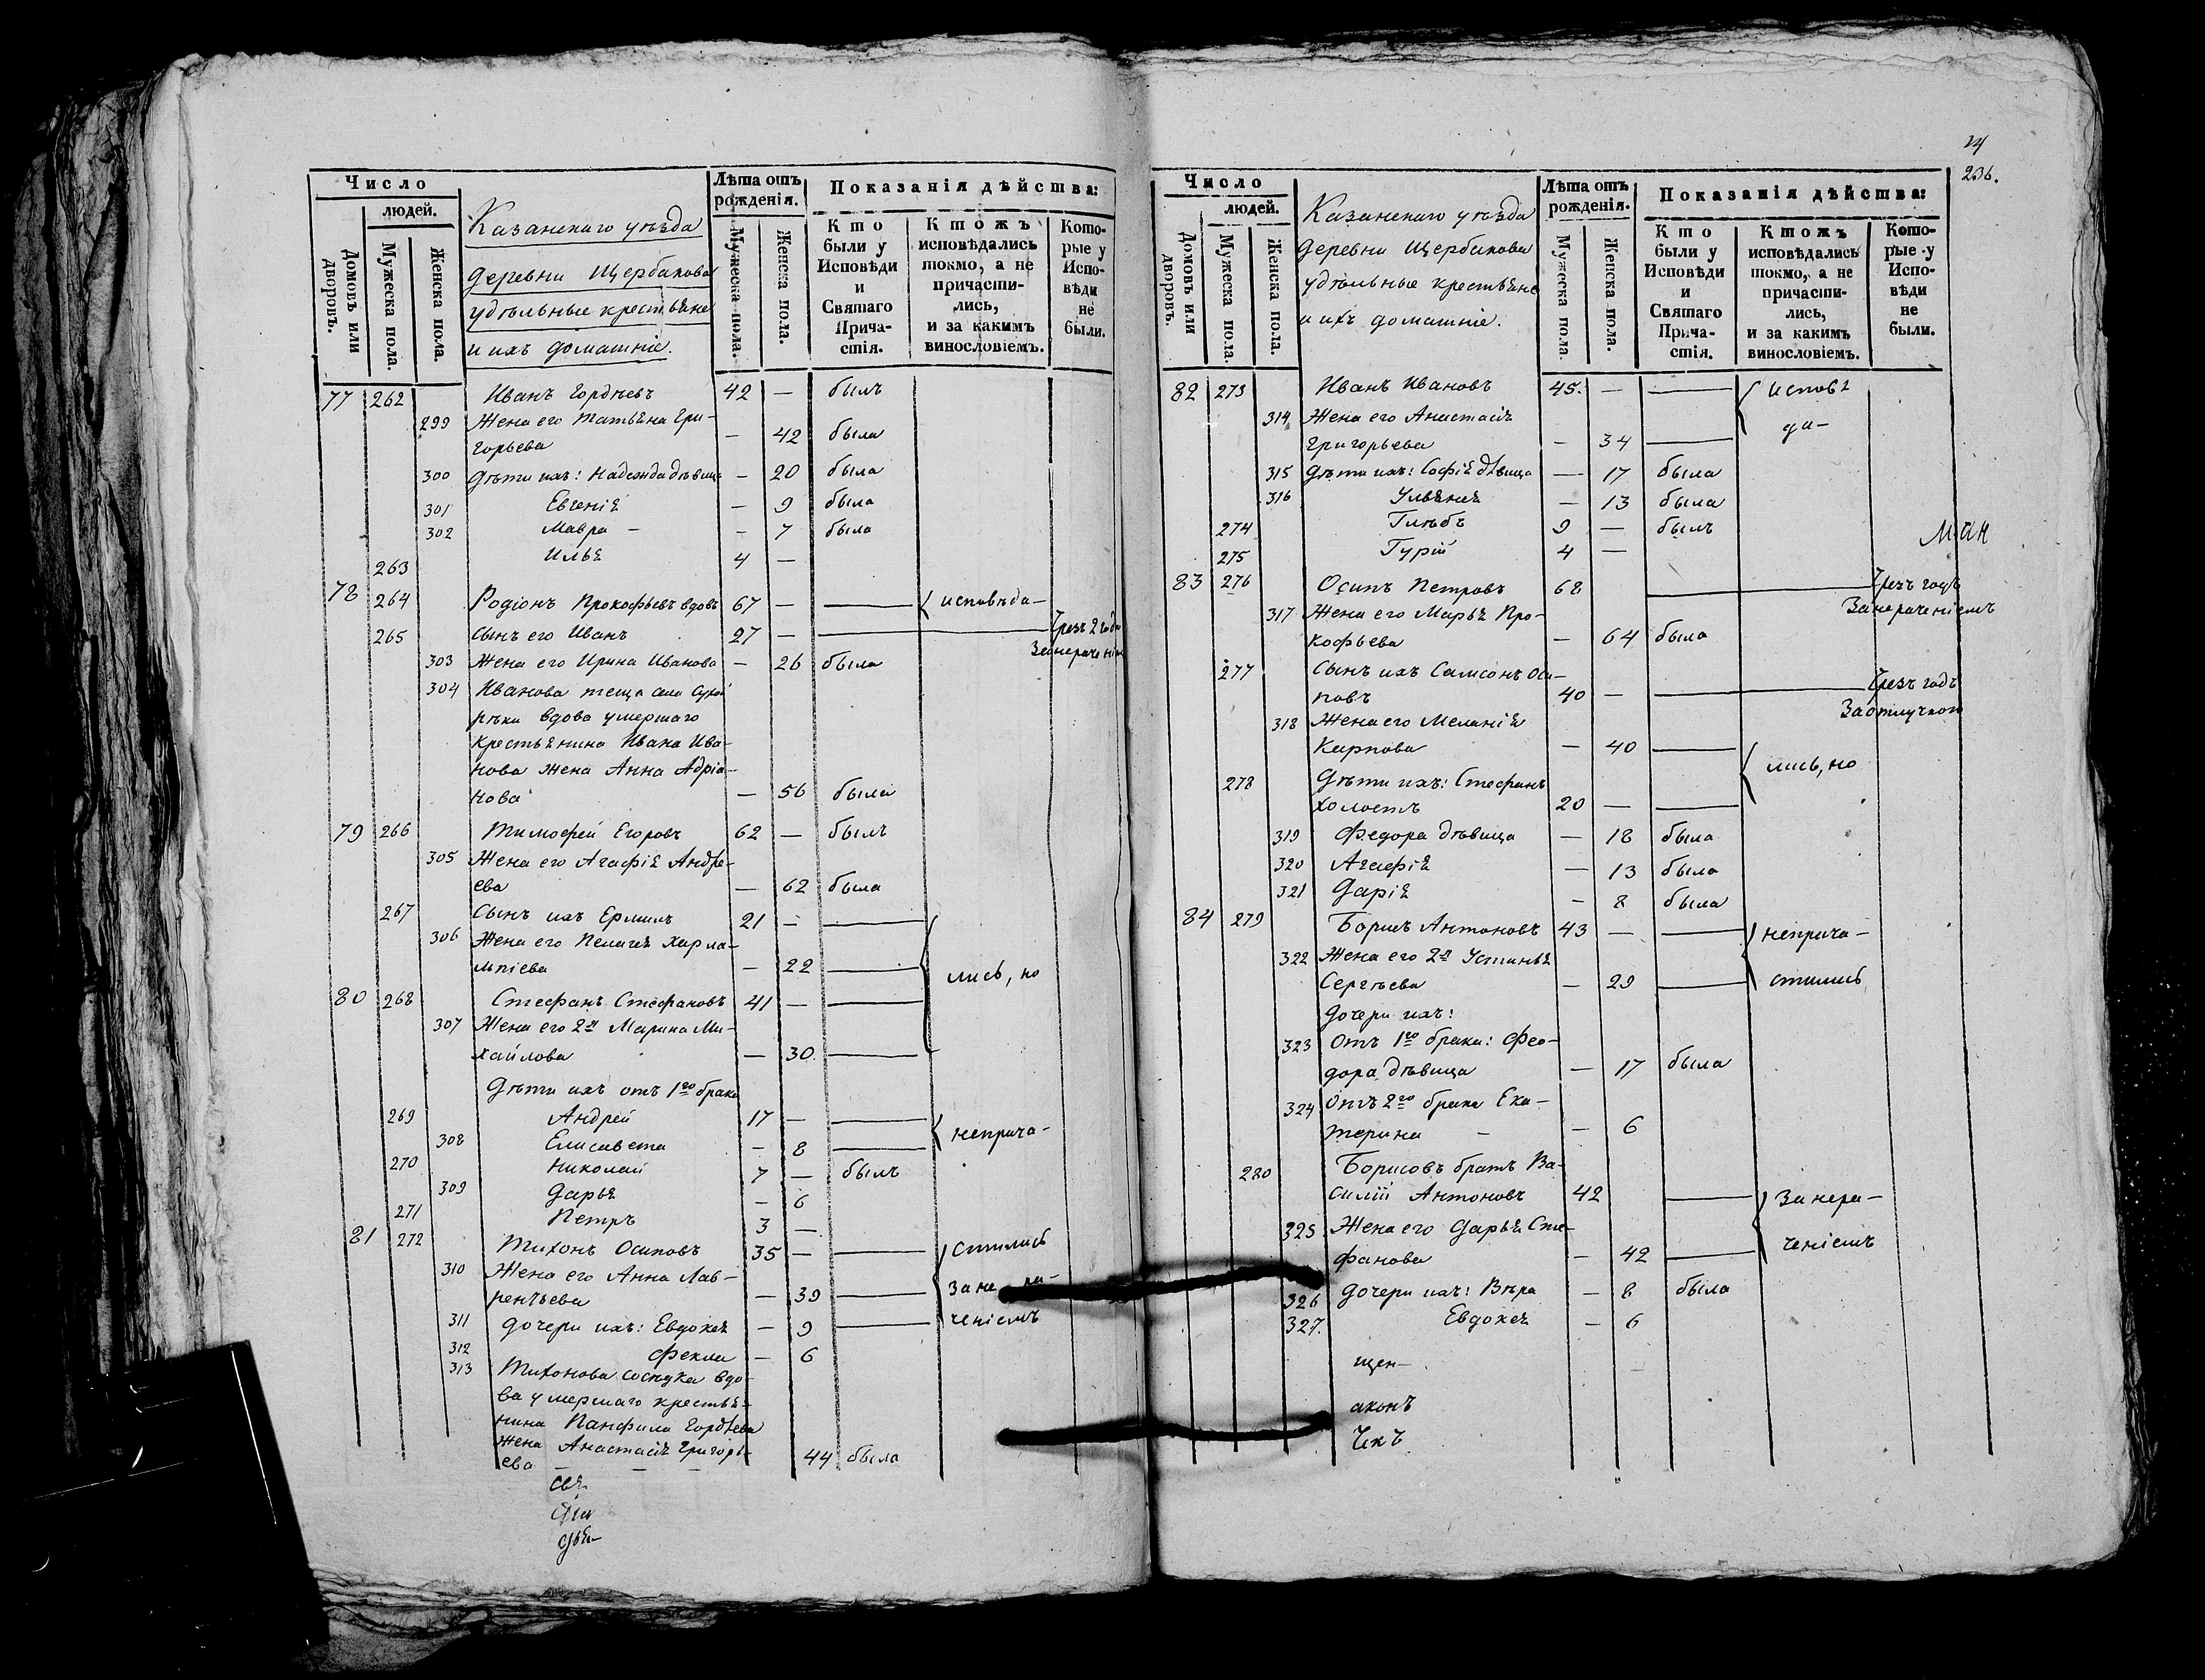 Число
людей.
Домовъ или дворовъ.
Мужеска пола.
Женска пола.
Казанскаго уѣзда
деревни Щербакова
удѣльные крестьяне
и ихъ домашніе.
Лѣта отъ
рожденія.
Мужеска пола.
Женска пола.
Показанія дѣйства:
Кто
были у
Исповѣди
и
Святаго
Прича-
стія.
Ктожъ
исповѣдались
токмо, а не
причасти-
лись,
и за какимъ
винословіемъ.
Кото-
рые у
Испо-
вѣди
не
были.
77 262 Иванъ Гордѣевъ 42 — былъ
299 Жена его Татьяна Гри-
горьева — 42 была
300 Дѣти ихъ: Надежда дѣвица — 20 была
301 Евгенія — 9 была
302 Мавра — — 7 была
263 Илья 4 —
78 264 Родіонъ Прокофьевъ вдовъ 67 — — исповѣда-
265 Сынъ его Иванъ 27 — — Чрезъ 2 года
За нераченіемъ
303 Жена его Ирина Иванова — 26 была
304 Иванова теща села Сухой
рѣки вдова умершаго
крестьянина Ивана Ива-
нова жена Анна Адріа-
нова — 56 была
79 266 Тимофей Егоровъ 62 — былъ
305 Жена его Агафія Андре-
ева — 62 была
267 Сынъ ихъ Ермилъ 21 — —
306 Жена его Пелагея Харла-
мпіева — 22 — лись, но
80 268 Стефанъ Стефановъ 41 — —
307 Жена его 2я Марина Ми-
хайлова — 30. —
Дѣти ихъ отъ 1го брака
269 Андрей 17 — —
308 Елисавета — 8 — неприча-
270 Николай 7 — былъ
309 Дарья — 6
271 Петръ 3 —
81 272 Тихонъ Осиповъ 35 — — стились
310 Жена его Анна Лав-
рентьева — 39 — за не ра-
311 дочери ихъ: Евдокея — 9 — ченіемъ
312 Фекла — 6
313 Тихонова сосѣдка вдо-
ва умершаго крестья-
нина Панфила Гордѣева
жена Анастасія Григорь-
ева — — — 44 была
Свя
Дья
24
236.
Число
людей.
Домовъ или дворовъ.
Мужеска пола.
Женска пола.
Казанскаго уѣзда
деревни Щербакова
удѣльные крестьяне
и ихъ домашніе.
Лѣта отъ
рожденія.
Мужеска пола.
Женска пола.
Показанія дѣйства:
Кто
были у
Исповѣди
и
Святаго
Прича-
стія.
Ктожъ
исповѣдались
токмо, а не
причасти-
лись,
и за какимъ
винословіемъ.
Кото-
рые у
Испо-
вѣди
не
были.
82 273 Иванъ Ивановъ 45. — — исповѣ
314 Жена его Анастасія
Григорьева — 34 — да-
315 Дѣти ихъ: Софія дѣвица — 17 была
316 Ульянея — 13 была
274 Глѣбъ 9 — былъ
275 Гурій 4 —
83 276 Осипъ Петровъ 68 — Чрезъ годъ
За нераченіемъ
317 Жена его Марья Про-
кофьева — 64 была
277 Сынъ ихъ Самсонъ Оси-
повъ 40 — — Чрезъ годъ
За отлучкою
318 Жена его Меланія
Карпова — 40 —
лись, но
278 Дѣти ихъ: Стефанъ
холостъ 20 — —
319 Федора дѣвица — 18 была
320 Агафія — 13 была
321 Дарія — 8 была
84 279 Борисъ Антоновъ 43 — — неприча-
322 Жена его 2я Устинья
Сергѣева — 29 — стились
Дочери ихъ:
323 Отъ 1го брака: Фео-
дора дѣвица — 17 была
324 Отъ 2го брака Ека-
терина — — 6
280 Борисовъ братъ Ва-
силій Антоновъ 42 — За нера-
325 Жена его Дарья Сте-
фанова — 42 — ченіемъ
326 Дочери ихъ: Вѣра — 8 была
327. Евдокея — 6
щен-
аконъ
чкъ